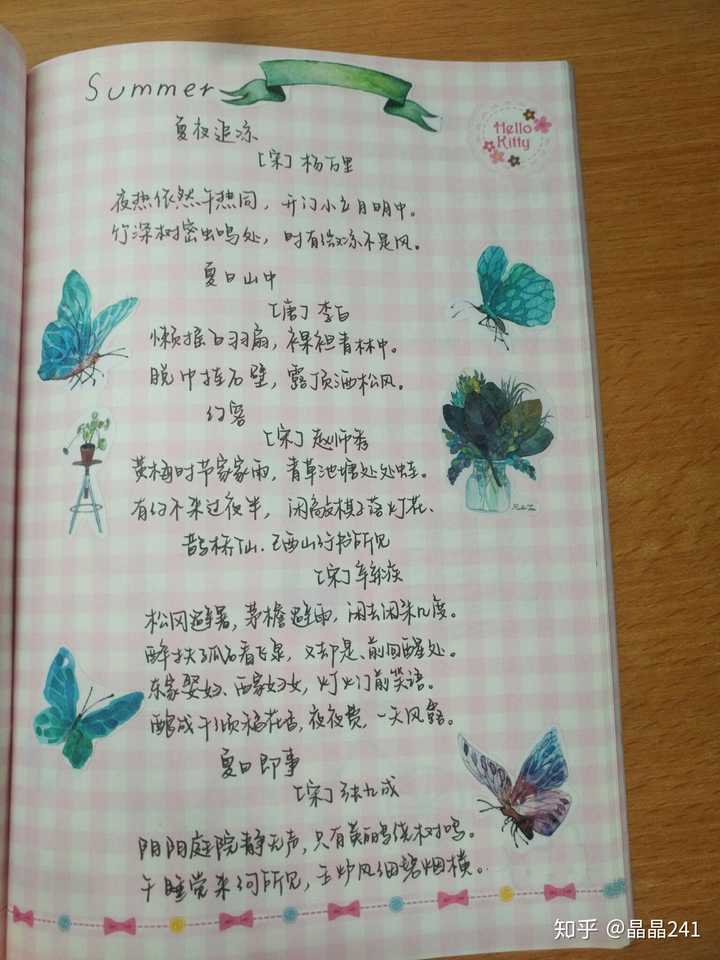 Summer
Hello
Kitty
夏夜追凉
[宋] 杨万里
夜热依然午热同，开门小立月明中。
竹深树密虫鸣处，时有微凉不是风。
夏日山中
[唐] 李白
懒摇白羽扇，裸袒青林中。
脱巾挂石壁，露顶洒松风。
约客
[宋] 赵师秀
黄梅时节家家雨，青草池塘处处蛙。
有约不来过夜半，闲敲棋子落灯花、
鹊桥仙·己酉山行书所见
[宋] 辛弃疾
松冈避暑，茅檐避雨，闲去闲来几度。
醉扶孤石看飞泉，又却是、前回醒处。
东家娶妇、西家归女，灯火门前笑语。
酿成千顷稻花香，夜夜费、一天风露。
夏日即事
[宋] 张九成
阴阴庭院静无声，只有黄鹂绕树鸣。
午睡觉来何所见，玉炉风细碧烟横。
知乎 @晶晶241